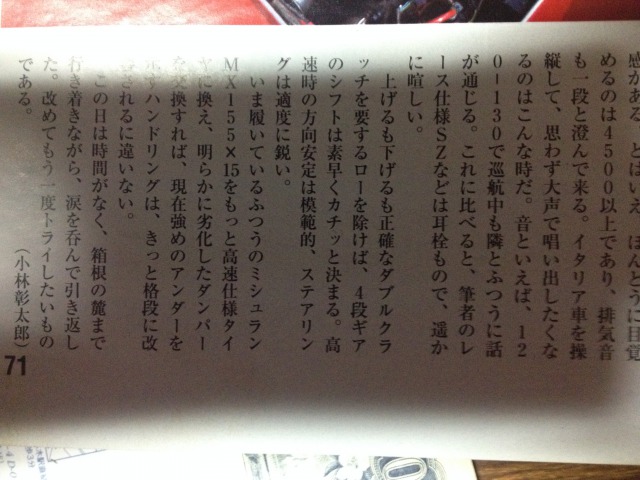 感がある　とはいえ　ほんとうに目覚
めるのは4500以上であり、排気音
も一段と澄んで来る。イタリア車を操
縦して、思わず大声で唱い出したくな
るのはこんな時だ。音といえば、12
0-130で巡航中も隣とふつうに話
が通じる。これに比べると、筆者のレ
ース仕様SZなどは耳栓もので、遥か
に喧しい。
上げるも下げるも正確なダブルクラ
ッチを要するローを除けば、4段ギア
のシフトは素早くカチッと決まる。高
速時の方向安定は模範的、ステアリン
グは適度に鋭い。
いま履いているふつうのミシュラン
MX155×15をもっと高速仕様タイ
ヤに換え、明らかに劣化したダンパー
を交換すれば、現在強めのアンダーを
示すハンドリングは、きっと格段に改
善されるに違いない。
この日は時間がなく、箱根の麓まで
行き着きながら、涙を呑んで引き返し
た。改めてもう一度トライしたいもの
である。
（小林彰太郎）
71